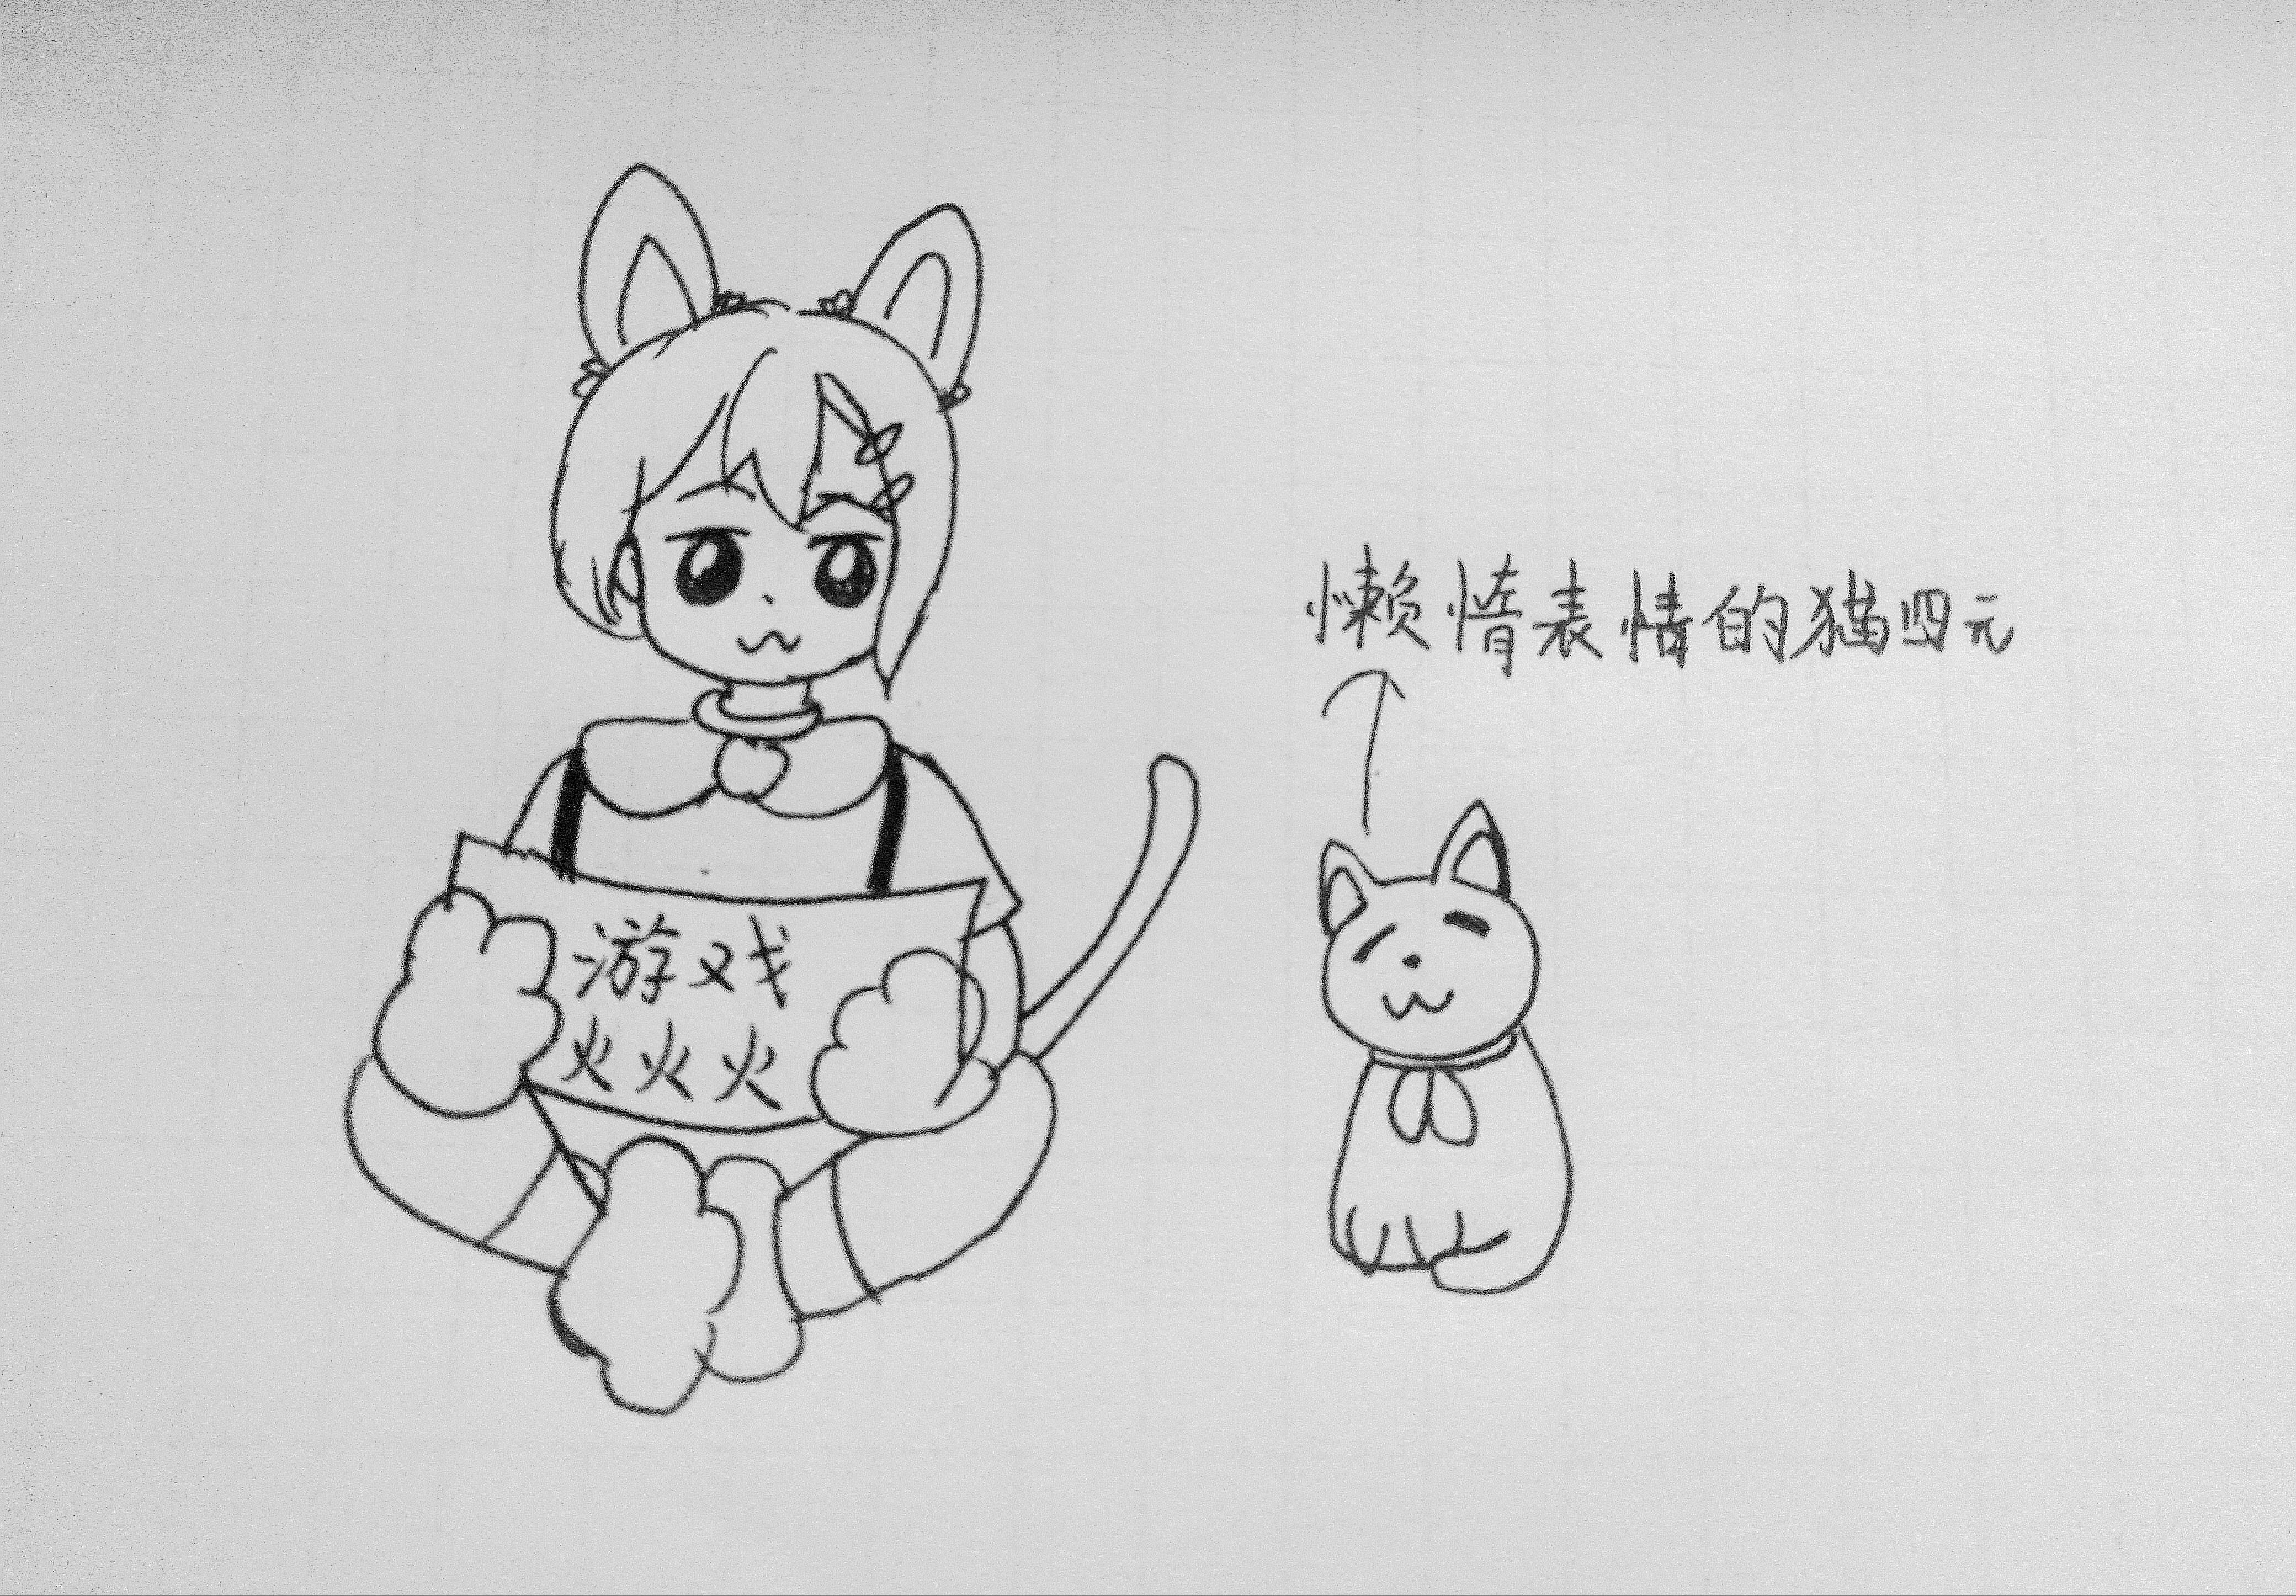 懒惰表情的猫四元
游戏
火火火